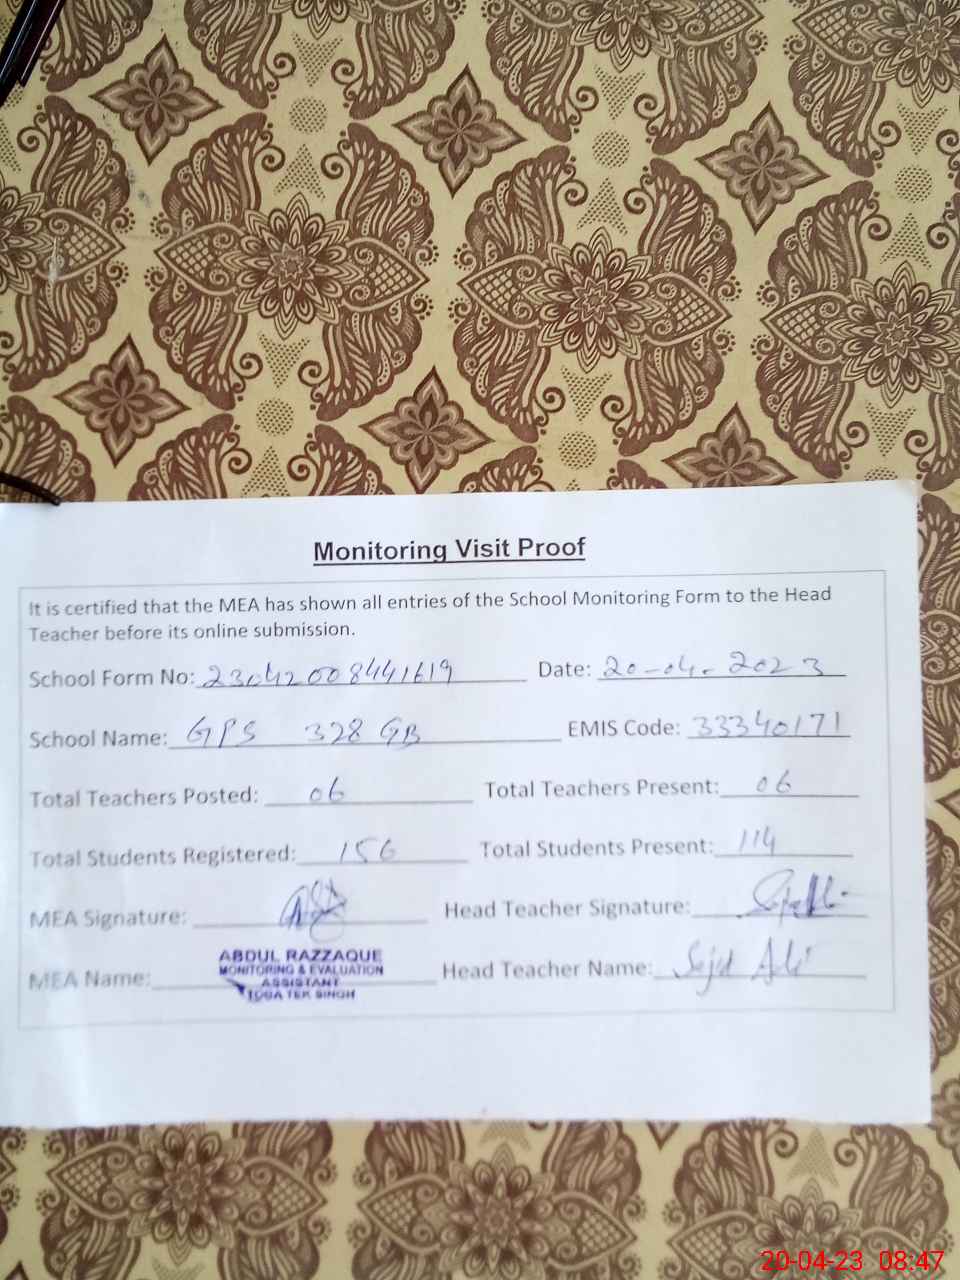 Monitoring Visit Proof
It is certified that the MEA has shown all entries of the School Monitoring Form to the Head
Teacher before its online submission.
School Form No: 23042008441619 Date: 20-04-2023
School Name: GPS 328 GB EMIS Code: 33340171
Total Teachers Posted: 06 Total Teachers Present: 06
Total Students Registered: 156 Total Students Present: 114
MEA Signature: Head Teacher Signature:
MEA Name: ABDUL RAZZAQUE Head Teacher Name: Sajid Ali
MONITORING & EVALUATION
ASSISTANT
TOBA TEK SINGH
20-04-23 08:47